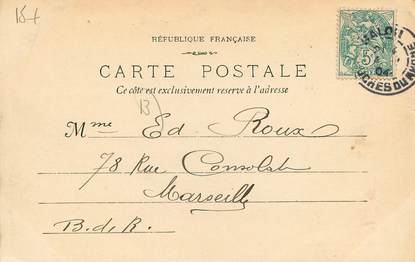 15+
RÉPUBLIQUE FRANÇAISE
CARTE POSTALE
Ce côté est exclusivement reservé à l'adresse
13)
Mme Ed Roux
78 Rue Consolat
Marseille
B. d. R.
04
BOUCHES DU RHONE